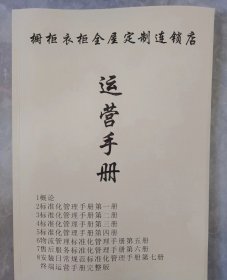 橱柜衣柜全屋定制连锁店
运营手册
1概论
2标准化管理手册第一册
3标准化管理手册第二册
4标准化管理手册第三册
5标准化管理手册第四册
6物流管理标准化管理手册第五册
7售后服务标准化管理手册第六册
8安装日常规范标准化管理手册第七册
终端运营手册完整版